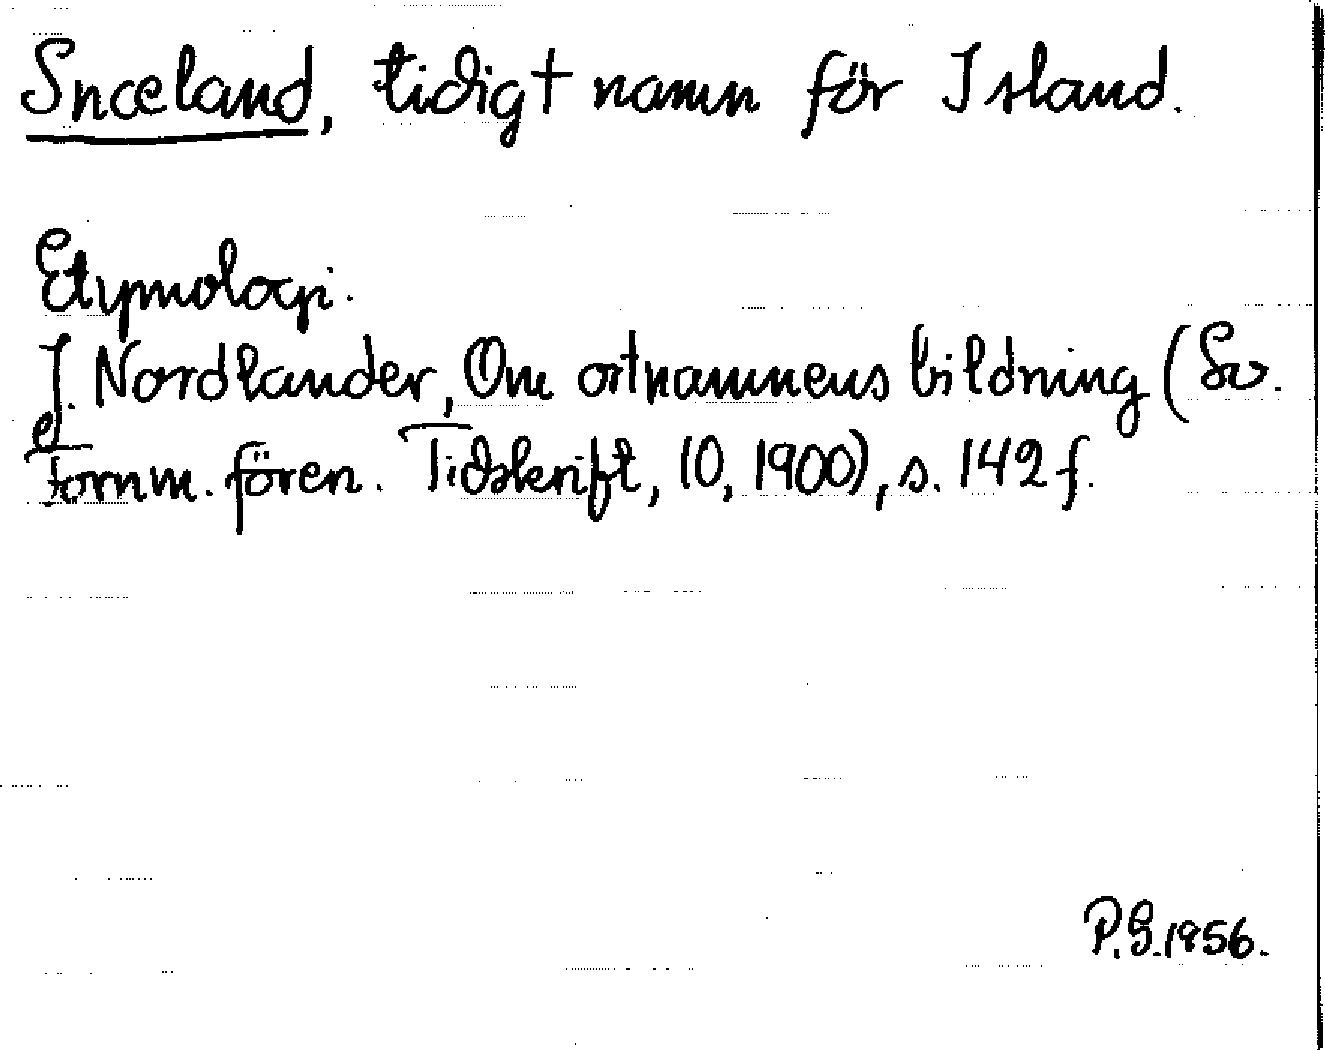 Snæland, tidigt namn för Island.
Etymologi.
J. Nordlander, Om ortnamnens bildning (Sv.
Fornm. fören. Tidskrift, 10, 1900), s. 142 f.
P.G. 1956.